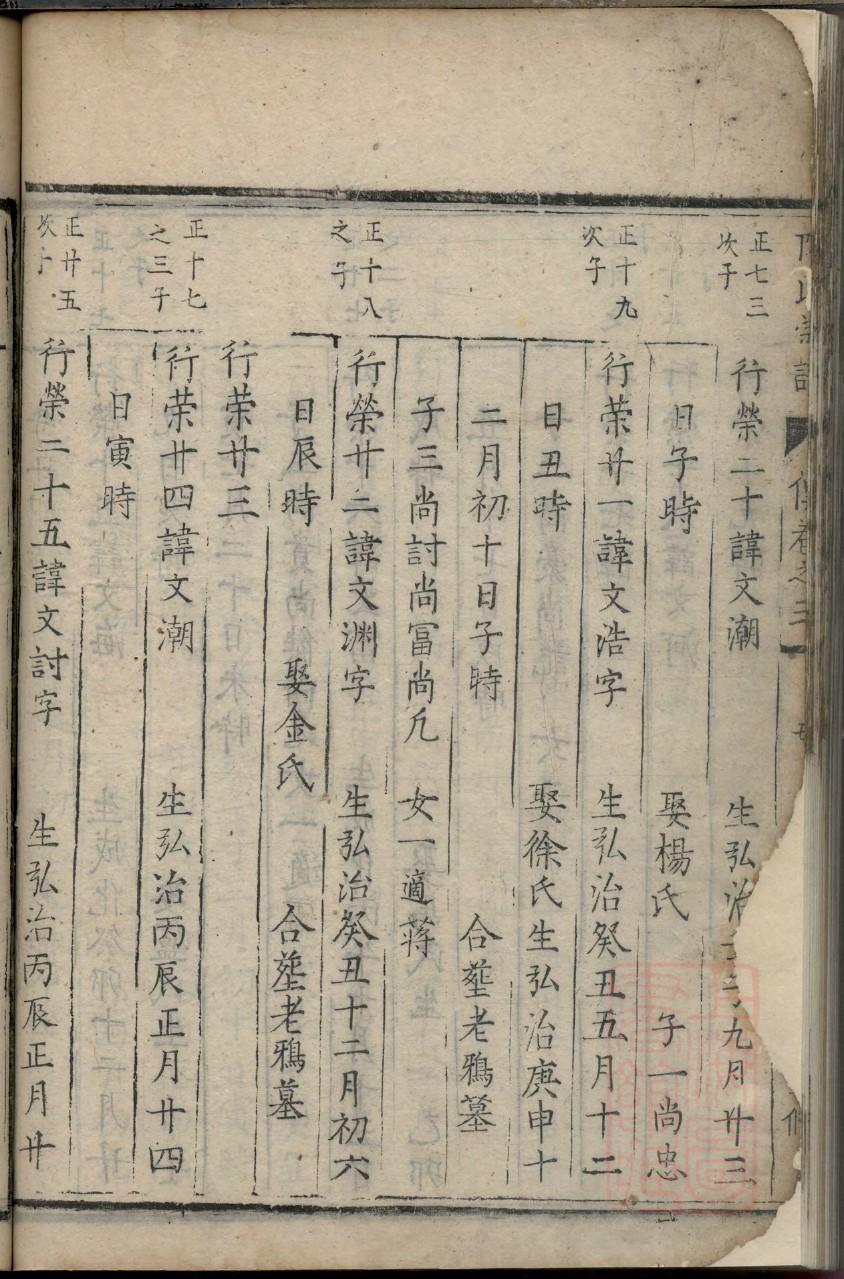 卷之三
正七三
次子
行榮二十諱文潮 生弘治 九月廿三
日子時 娶楊氏 子一尚忠
正十九
次子
行荣廿一諱文浩字 生弘治癸丑五月十二
日丑時 娶徐氏生弘治庚申十
二月初十日子時 合塟老鴉墓
子三尚討尚冨尚凢 女一適蒋
正十八
之子
行榮廿二諱文渊字 生弘治癸丑十二月初六
日辰時 娶金氏 合塟老鴉墓
行荣廿三
正十七
之三子
行荣廿四諱文潮 生弘治丙辰正月廿四
日寅時
正廿五
次子
行榮二十五諱文討字 生弘治丙辰正月廿